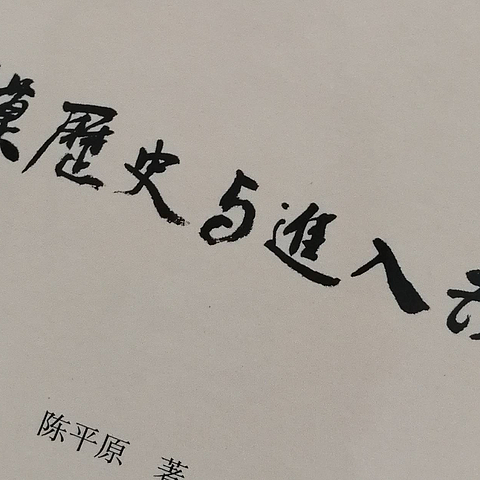 歷史与進入
陈平原 著